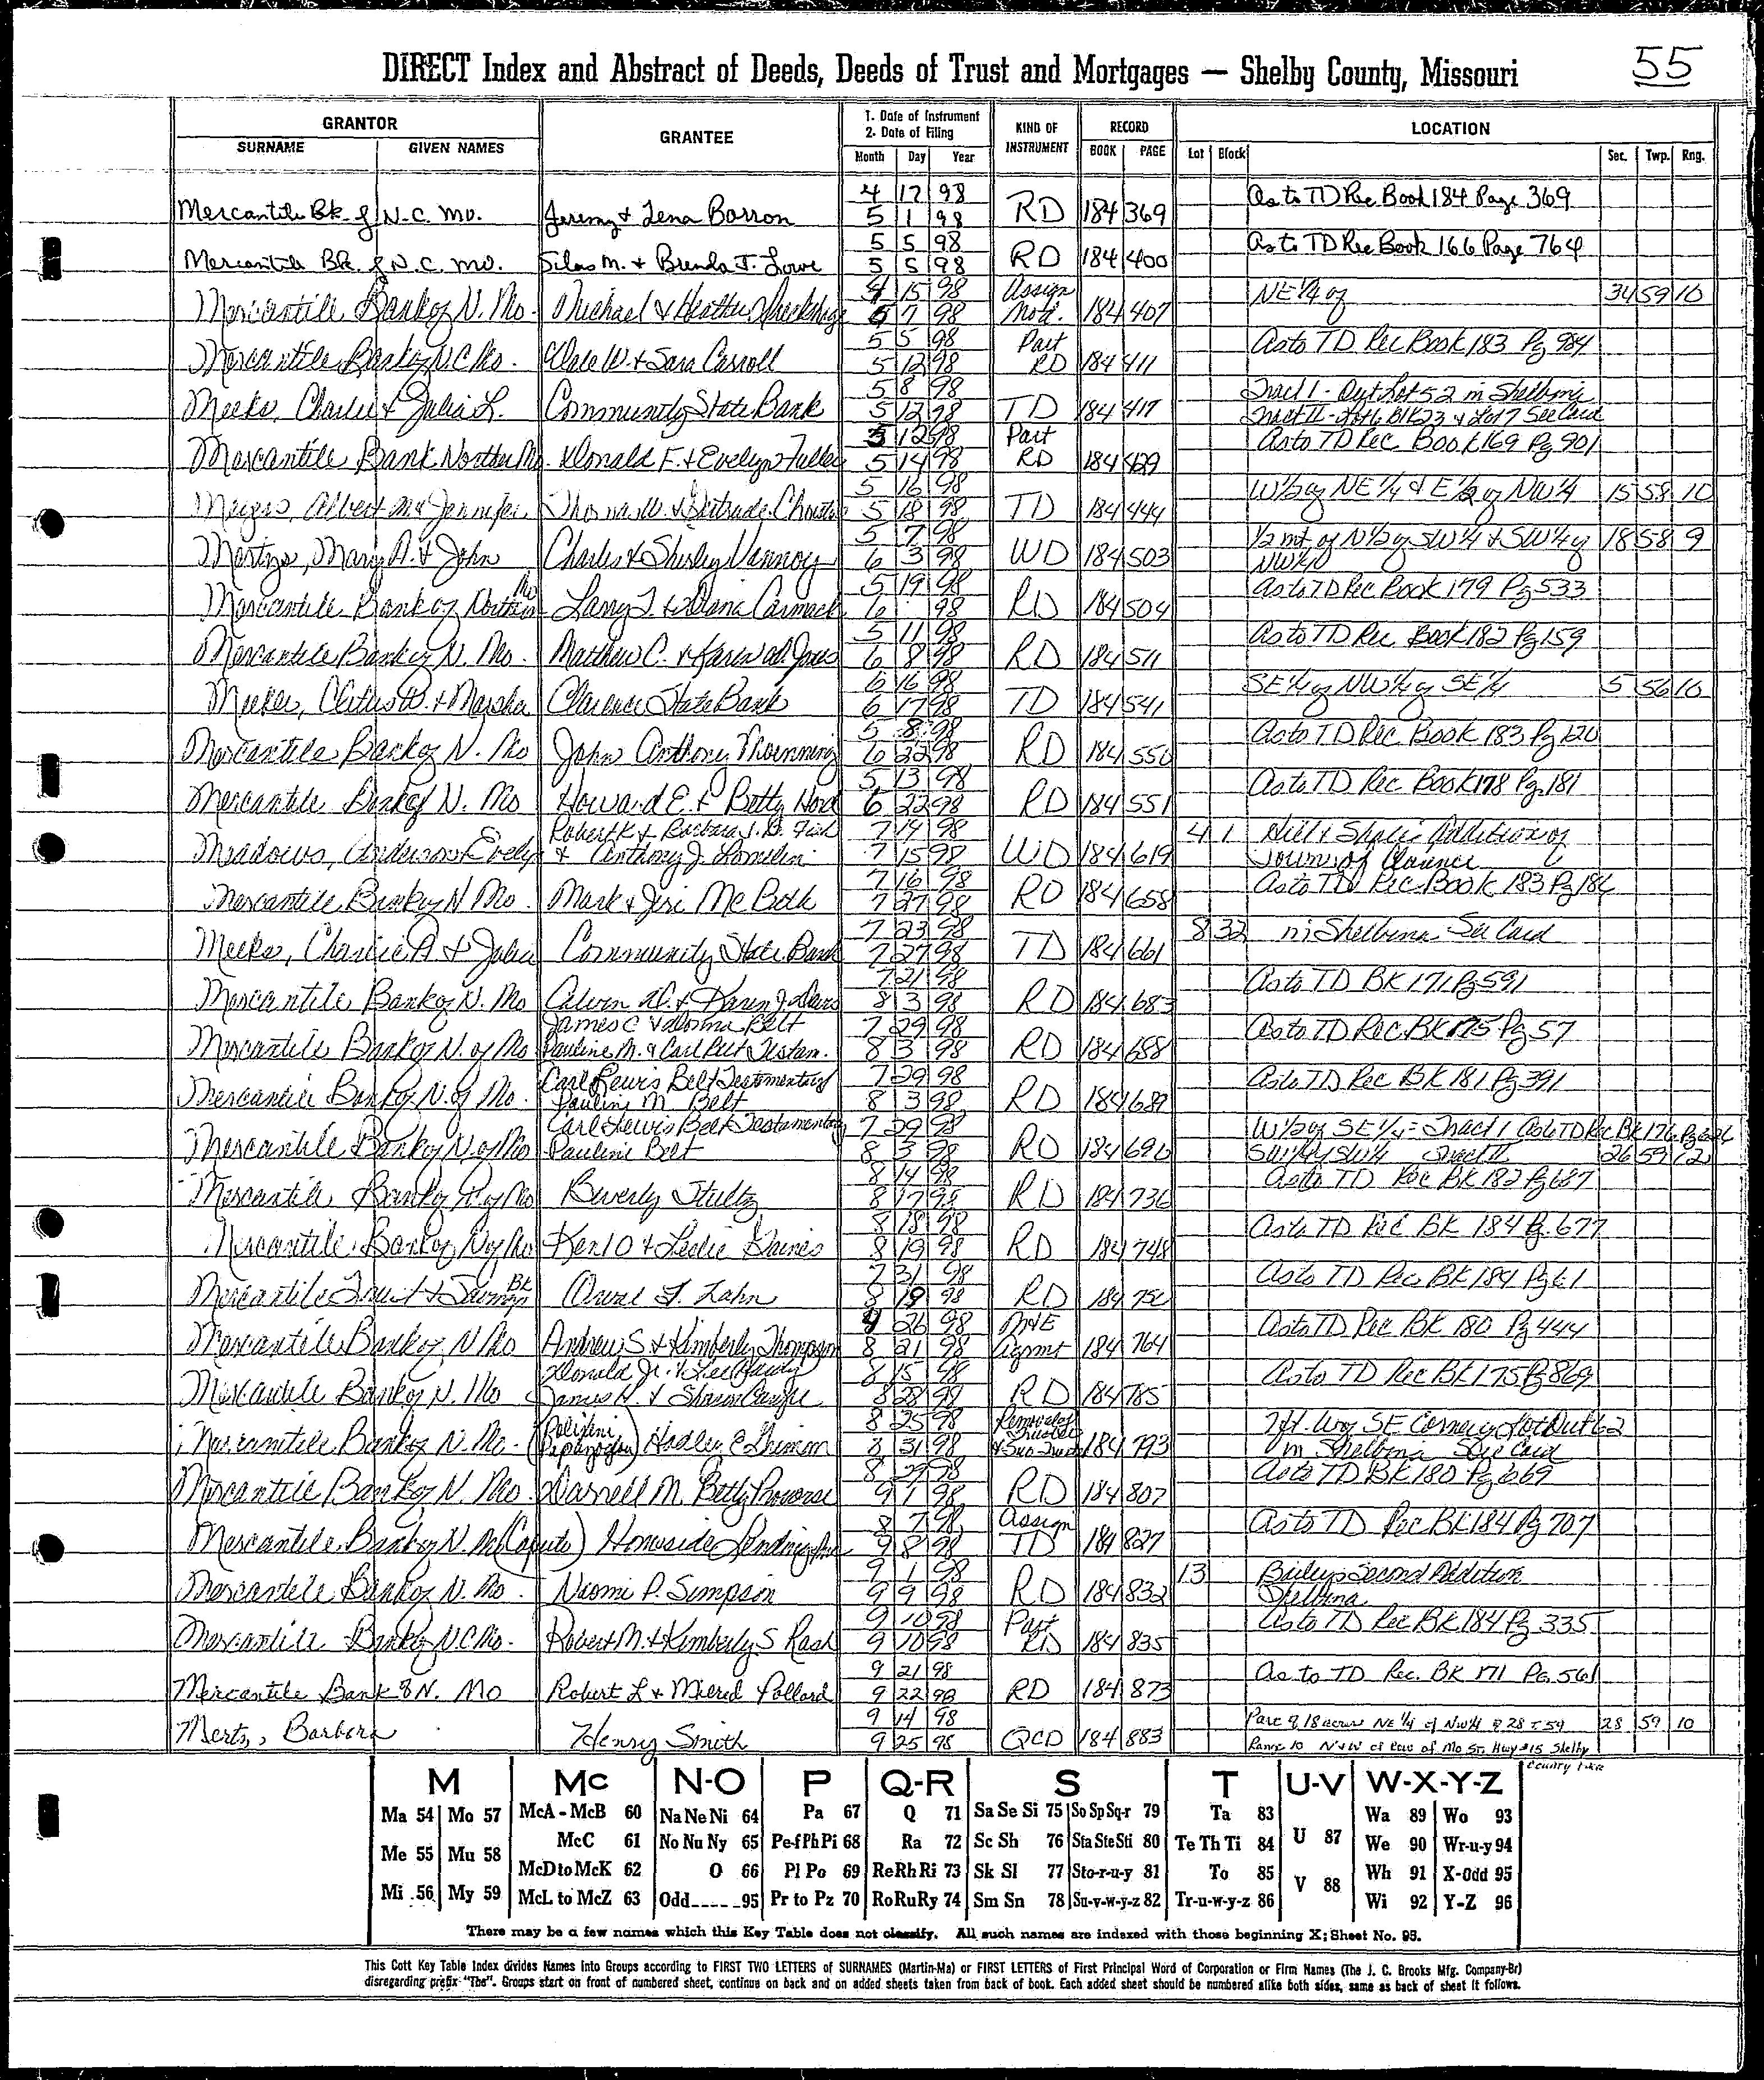 55
DIRECT Index and Abstract of Deeds, Deeds of Trust and Mortgages — Shelby County, Missouri
GRANTOR GRANTEE 1. Date of Instrument 2. Date of Filing KIND OF INSTRUMENT RECORD LOCATION
SURNAME GIVEN NAMES Month Day Year BOOK PAGE Lot Block Sec. Twp. Rng.
4 17 98 As to TD Rec Book 184 Page 369
Mercantile Bk of N.C. Mo. Jeremy & Lena Barron 5 1 98 RD 184 369
5 5 98 As to TD Rec Book 166 Page 764
Mercantile Bk of N.C. Mo. Silas M. & Brenda J. Lowe 5 5 98 RD 184 400
4 15 98 Assign NE 1/4 of 34 59 10
Mercantile Bank of N. Mo. Michael & Heather 7 98 184 407
5 5 98 Part As to TD Rec Book 183 Pg 984
Mercantile Bank of N C Mo. Dale W. & Sara Carroll 5 12 98 RD 184 411
5 8 98 Tract I - Out Lot 52 in Shelbina
Meeks, Charlie & Julia L. Community State Bank 5 12 98 TD 184 417 Tract II - Lot 6 Blk 23 & Lot 7 See Card
5 12 98 Part As to TD Rec. Book 169 Pg 901
Mercantile Bank Northern Mo. Donald F. & Evelyn Fuller 5 14 98 RD 184 429
5 16 98 W 1/2 of NE 1/4 & E 1/2 of NW 1/4 15 58 10
Albert M & Jennifer Thomas W. & Gertrude 5 18 98 TD 184 444
5 7 98 1/2 int. of N 1/2 of SW 1/4 & SW 1/4 of 18 58 9
Mary A. & John Charles & Shirley Vannoy 6 3 98 WD 184 503 NW 1/4
5 19 98 As to TD Rec Book 179 Pg 533
Mercantile Bank of Northern Mo Larry J. & Diana Carmack 6 98 RD 184 504
5 11 98 As to TD Rec Book 182 Pg 159
Mercantile Bank of N. Mo. Matthew C. & Karen 6 8 98 RD 184 511
6 16 98 SE 1/4 of NW 1/4 of SE 1/4 5 56 10
& Marsha Clarence State Bank 6 17 98 TD 184 541
5 8 98 As to TD Rec Book 183 Pg 120
Mercantile Bank of N. Mo John Anthony 6 22 98 RD 184 550
5 13 98 As to TD Rec Book 178 Pg 181
Mercantile Bank of N. Mo Howard E. & Betty 6 22 98 RD 184 551
Robert K & Barbara J. 7 14 98 4 1 Addition of
Meadows, Anderson & Evelyn & Anthony J. 7 15 98 WD 184 619 Town of Clarence
7 16 98 As to TD Rec. Book 183 Pg 186
Mercantile Bank of N Mo. Mark & Jeri 7 27 98 RD 184 658
7 23 98 8 32 in Shelbina See Card
Meeks, Charlie A & Julia Community State Bank 7 27 98 TD 184 661
7 21 98 As to TD BK 171 Pg 591
Mercantile Bank of N. Mo Alvin & Karen J 8 3 98 RD 184 683
James C & Donna Belt 7 29 98 As to TD Rec. BK 175 Pg 57
Mercantile Bank of N. of Mo Pauline M. & Carl Belt Testam. 8 3 98 RD 184 688
Carl Lewis Belt Testamentary 7 29 98 As to TD Rec BK 181 Pg 391
Mercantile Bank of N. of Mo. Pauline M Belt 8 3 98 RD 184 689
Carl Lewis Belt Testamentary 7 29 98 W 1/2 of SE 1/4 = Tract I As to TD Rec Bk 176
Mercantile Bank of N of Mo Pauline Belt 8 3 98 RD 184 690 Tract II 26 59 12
8 14 98 As to TD Rec BK 182 Pg 687
Mercantile Bank of N. of Mo Beverly Stultz 8 17 98 RD 184 736
8 18 98 As to TD Rec BK 184 Pg. 677
Mercantile Bank of N of Mo Ken O & Leslie 8 19 98 RD 184 748
7 31 98 As to TD Rec BK 184 Pg 61
Mercantile Trust & Savings Bk 8 19 98 RD 184 750
26 98 As to TD Rec BK 180 Pg 444
Mercantile Bank of N Mo Andrew S & Kimberly Thompson 8 21 98 184 764
Donald Jr. 8 15 98 As to TD Rec BK 175 Pg 869
Mercantile Bank of N. Mo James H. & Sharon 8 28 98 RD 184 785
8 25 98 Removal of Trustee 7 ft. W of SE Corner of Lot Out 62
Mercantile Bank of N. Mo. Hadley E Grimm 8 31 98 184 793 in Shelbina See Card
8 29 98 As to TD BK 180 Pg 669
Mercantile Bank of N. Mo. Darrell M. Betty 9 1 98 RD 184 807
8 7 98 Assign As to TD Rec BK 184 Pg 707
Mercantile Bank of N. Mo (Caputo) Homeside Lending Inc 9 8 98 TD 184 827
9 1 98 13 Baileys Second Addition
Mercantile Bank of N. Mo. Naomi P. Simpson 9 9 98 RD 184 832 Shelbina
9 10 98 Part As to TD Rec BK 184 Pg 335
Mercantile Bank of N C Mo. Robert M. & Kimberly S Rash 9 10 98 RD 184 835
9 21 98 As to TD Rec. BK 171 Pg. 561
Mercantile Bank of N. Mo Robert L & Milred Pollard 9 22 98 RD 184 873
9 14 98 Part of 18 acres NE 1/4 of NW 1/4 of 28 T 59 28 59 10
Mertz, Barbara Henry Smith 9 25 98 QCD 184 883 Range 10 N & W of Row of Mo St. Hwy #15 Shelby
County
M Mc N-O P Q-R S T U-V W-X-Y-Z
Ma 54 Mo 57 McA - McB 60 Na Ne Ni 64 Pa 67 Q 71 Sa Se Si 75 So Sp Sq-r 79 Ta 83 U 87 Wa 89 Wo 93
Me 55 Mu 58 McC 61 No Nu Ny 65 Pe-f Ph Pi 68 Ra 72 Sc Sh 76 Sta Ste Sti 80 Te Th Ti 84 We 90 Wr-u-y 94
McD to McK 62 O 66 Pl Po 69 Re Rh Ri 73 Sk Sl 77 Sto-r-u-y 81 To 85 V 88 Wh 91 X-Odd 95
Mi 56 My 59 McL to McZ 63 Odd-----95 Pr to Pz 70 Ro Ru Ry 74 Sm Sn 78 Su-v-w-y-z 82 Tr-u-w-y-z 86 Wi 92 Y-Z 96
There may be a few names which this Key Table does not classify. All such names are indexed with those beginning X; Sheet No. 95.
This Cott Key Table Index divides Names into Groups according to FIRST TWO LETTERS of SURNAMES (Martin-Ma) or FIRST LETTERS of First Principal Word of Corporation or Firm Names (The J. C. Brooks Mfg. Company-Br)
disregarding prefix "The". Groups start on front of numbered sheet, continue on back and on added sheets taken from back of book. Each added sheet should be numbered alike both sides, same as back of sheet it follows.